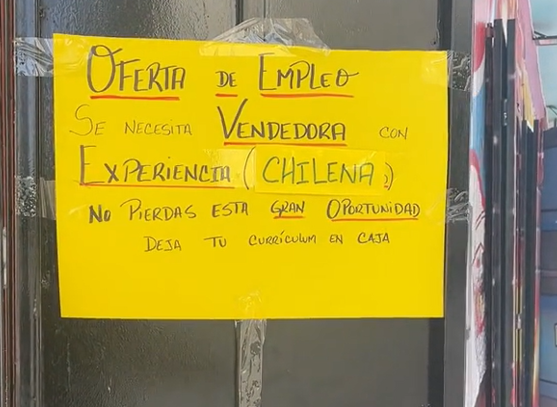 OFERTA DE EMPLEO
SE NECESITA VENDEDORA CON
EXPERIENCIA (CHILENA)
NO PIERDAS ESTA GRAN OPORTUNIDAD
DEJA TU CURRÍCULUM EN CAJA